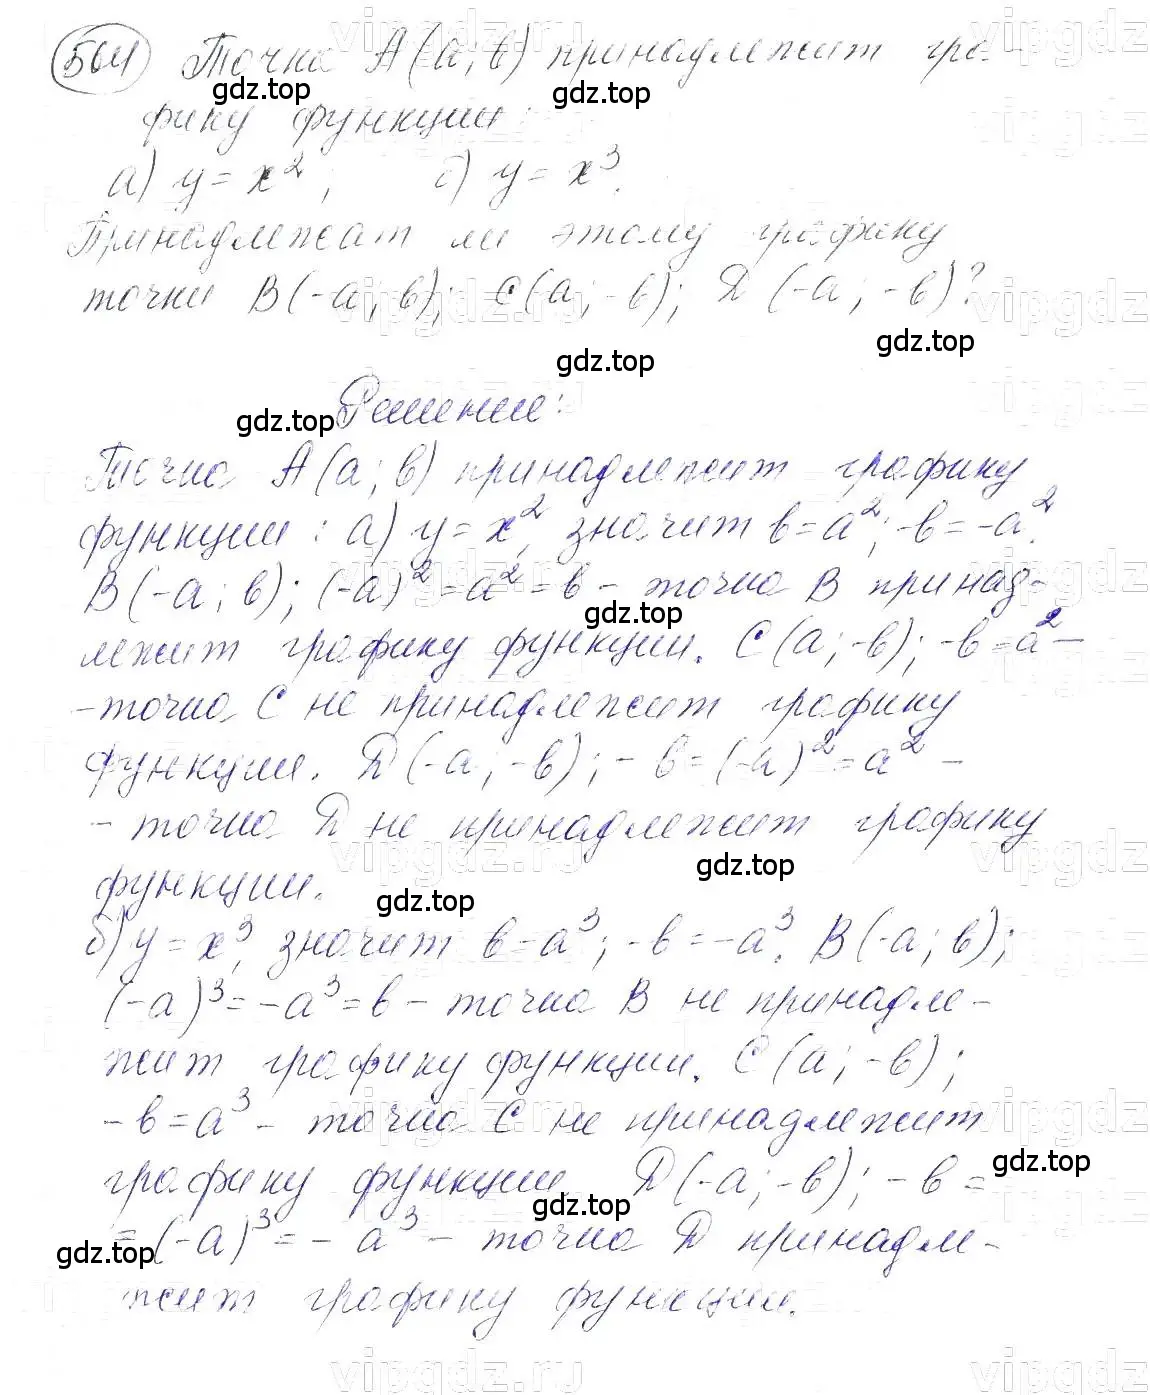 564 Точка А(а; в) принадлежит гра-
фику функции:
а) y = x²; б) y = x³.
Принадлежат ли этому графику
точки В(-а; в); С(а; -в); Д(-а; -в)?
Решение:
Точка А(а; в) принадлежит графику
функции: а) y = x², значит в = а²; -в = -а².
В(-а; в); (-а)² = а² = в - точка В принад-
лежит графику функции. С(а; -в); -в = а² -
- точка С не принадлежит графику
функции. Д(-а; -в); -в = (-а)² = а² -
- точка Д не принадлежит графику
функции.
б) y = x³, значит в = а³; -в = -а³. В(-а; в);
(-а)³ = -а³ = в - точка В не принадле-
жит графику функции. С(а; -в);
-в = а³ - точка С не принадлежит
графику функции. Д(-а; -в); -в =
= (-а)³ = -а³ - точка Д принадле-
жит графику функции.
gdz.top
gdz.top
gdz.top
gdz.top
gdz.top
gdz.top
gdz.top
gdz.top
gdz.top
gdz.top
gdz.top
vipgdz.ru